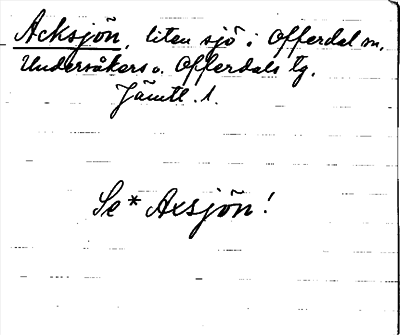 Acksjön, liten sjö i Offerdal sn,
Undersåkers o. Offerdals tg,
Jämtl. l.
Se * Axsjön!